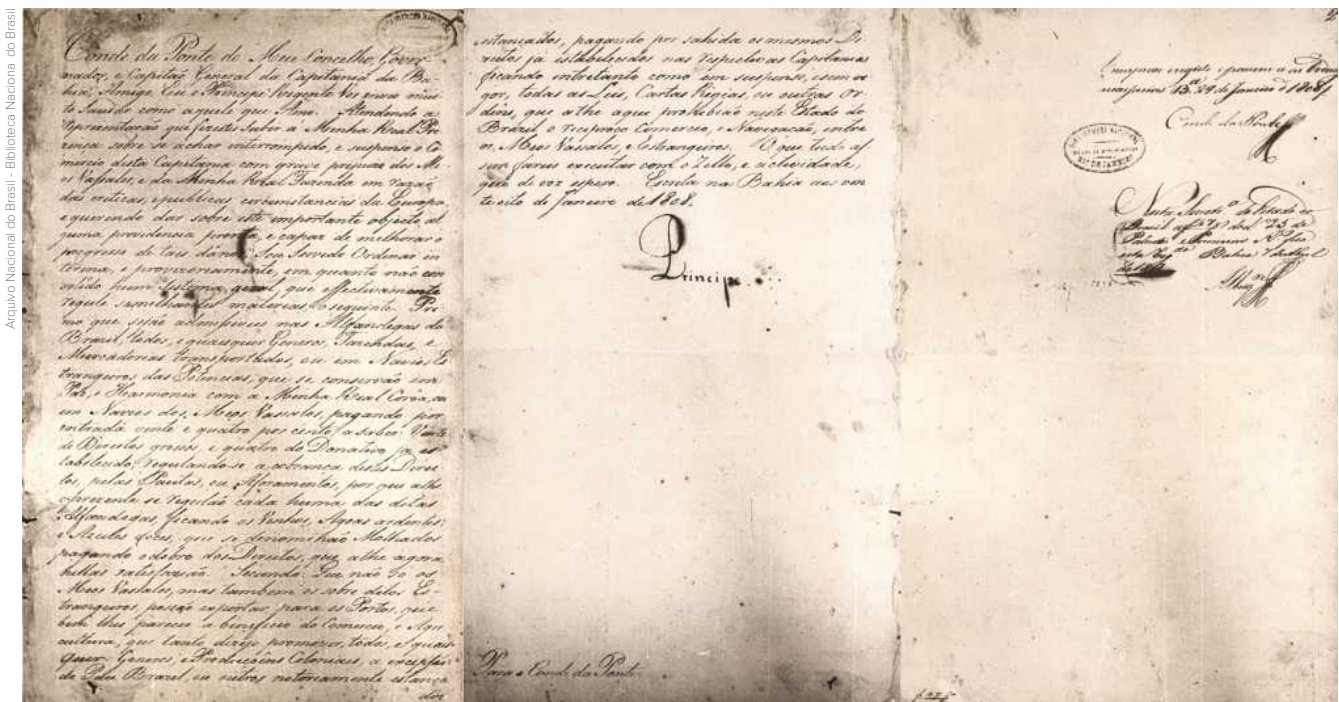 Arquivo Nacional do Brasil - Biblioteca Naciona do Brasil
Conde da Ponte do Meu Concelho, Gover-
nador, e Capitaõ General da Capitania da Ba-
hia; Amigo. Eu o Principe Regente vos envio mui-
to Saudar como aquele que Amo. Attendendo a
representaçaõ que fizestes subir a Minha Real Pre-
zença sobre se achar interrompido, e suspenso o Co-
mercio desta Capitania com grave prejuizo dos Me-
os Vassalos, e da Minha Real Fazenda em razaõ
das criticas, e publicas circunstancias da Europa,
e querendo dar sobre este importante objecto al-
guma providencia pronta, e capaz de melhorar o
progresso de tais danos: Sou Servido Ordenar in-
terina, e provizoriamente, em quanto naõ con-
solido hum Sistema geral, que effectivamente
regule semelhantes materias, o seguinte. Pri-
mo que sejaõ admissiveis nas Alfandegas do
Brazil, todos, e quaisquer Generos, Fazendas, e
Mercadorias transportadas, ou em Navios Es-
trangeiros das Potencias, que se conservaõ em
Paz, e Harmonia com a Minha Real Corôa, ou
em Navios dos Meos Vassalos, pagando por
entrada vinte e quatro por cento; a saber: Vinte
de Direitos grosos, e quatro do Donativo ja es-
tabelecido, regulando-se a cobrança destes Direi-
tos, pelas Pautas, ou Aforamentos, por que athe
o prezente se regulaõ cada huma das ditas
Alfandegas, ficando os Vinhos, Agoas ardentes,
e Azeites doces, que se denominaõ Molhados
pagando o dobro dos Direitos, que athe agora
nellas satisfaziaõ. Secundo: Que naõ só os
Meos Vassalos, mas tambem os sobre ditos Es-
trangeiros possaõ exportar para os Portos, que
bem lhes parecer a beneficio do Comercio, e Agri-
cultura, que tanto dezejo promover, todos, e quais-
quer Generos, e Producçoens Coloniaes, a excepçaõ
do Pau Brazil, ou outros notoriamente estanca-
dos
estancados, pagando por sahida os mesmos Di-
reitos ja estabelecidos nas respectivas Capitanias
ficando entretanto como em suspenso, e sem vi-
gor, todas as Leis, Cartas Regias, ou outras Or-
dens, que athe aqui prohibiaõ neste Estado do
Brazil o reciproco Comercio, e Navegaçaõ, entre
os Meus Vassalos, e Estrangeiros. O que tudo as-
sim fareis executar com o Zello, e actividade,
que de voz espero. Escrita na Bahia aos vin-
te oito de Janeiro de 1808.
Principe
Para o Conde da Ponte
29 de Janeiro d 1808
Conde da Ponte
RIO DE JANEIRO
Bahia